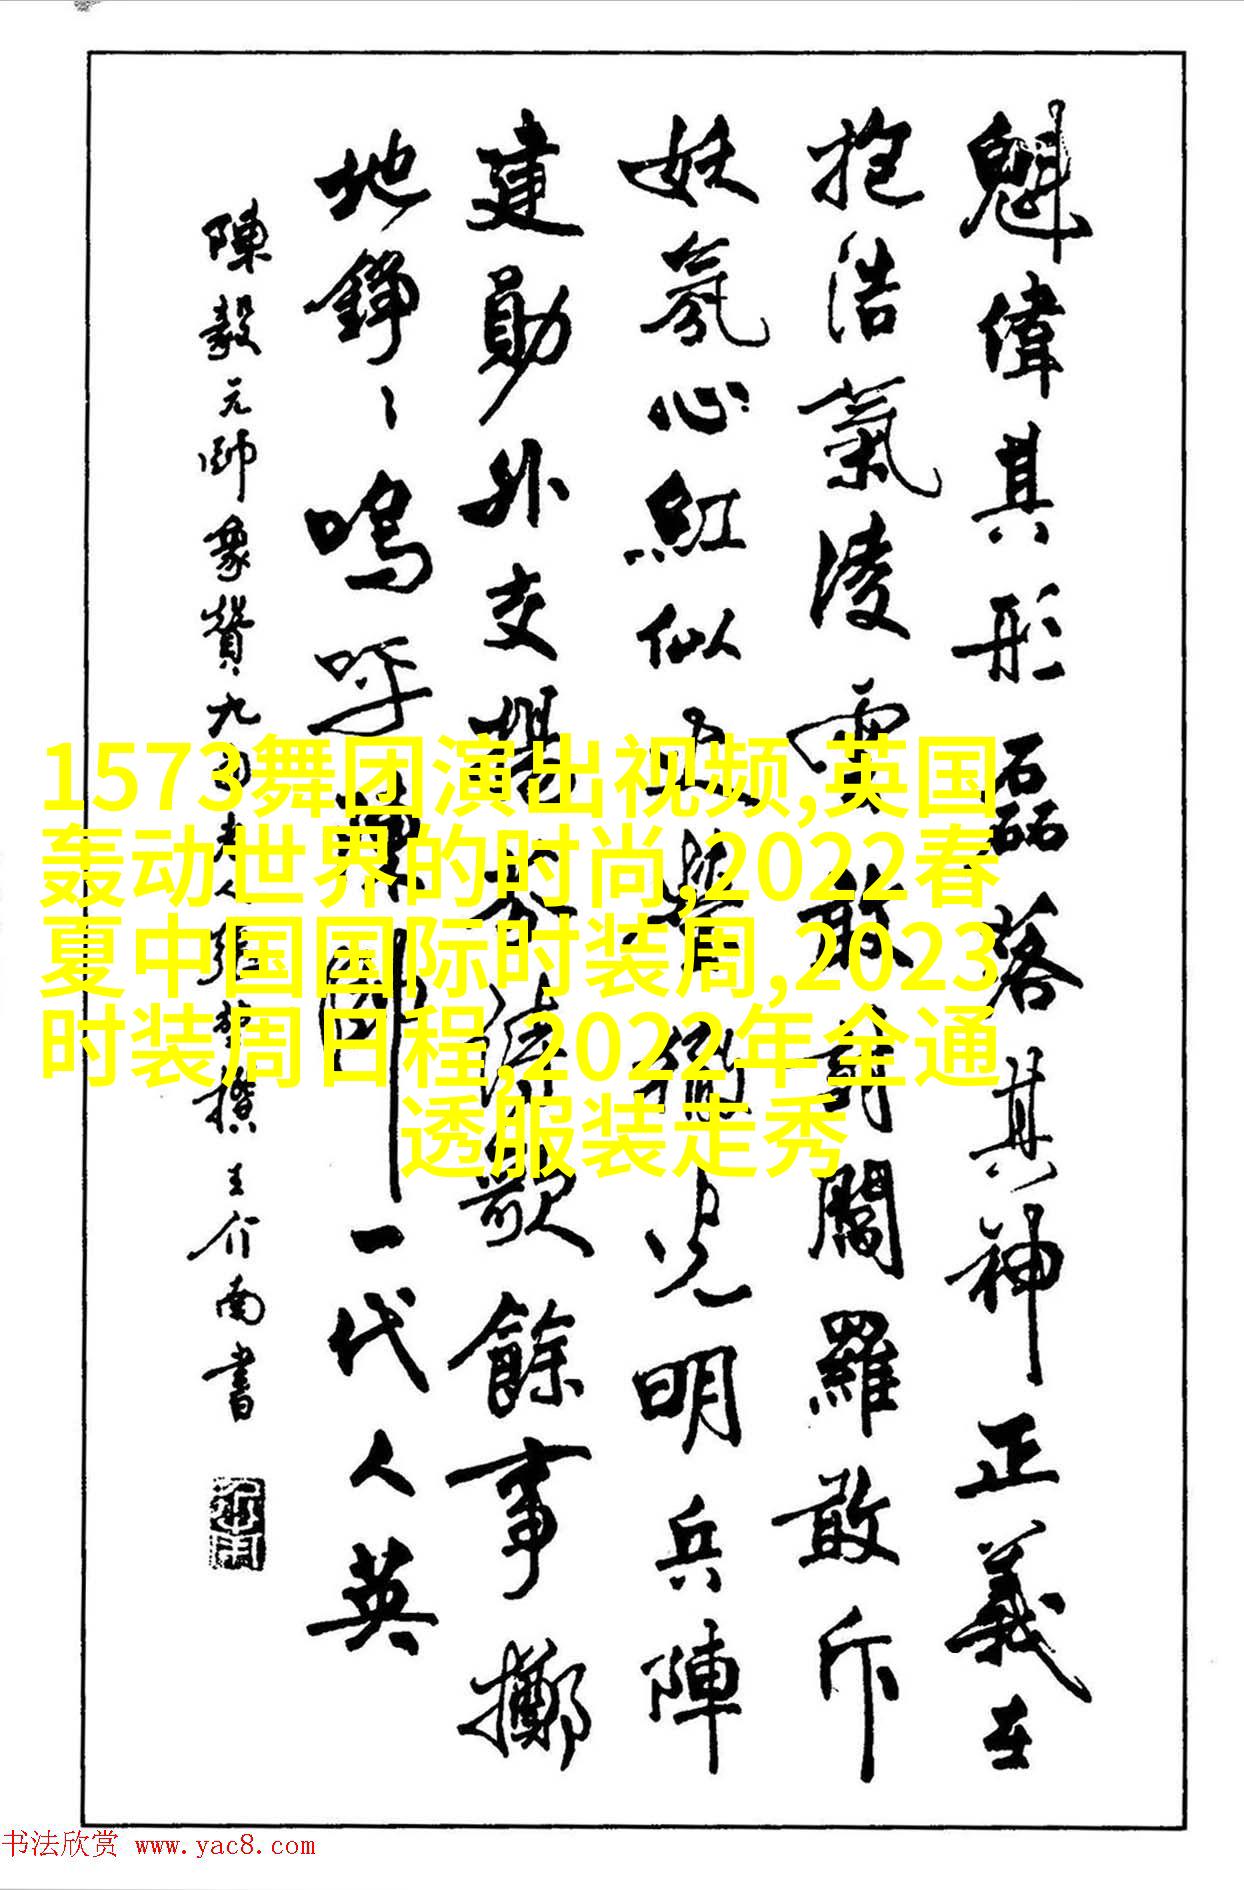 魁偉其形磊落其神正義在
抱浩氣淩雲敢羅敢斥
妖氛心紅似火光明兵陣
建勛外交揚芬詩歌餘事擲
地錚〻嗚呼一代人英
陳毅元帥象贊九四老人張撰王介南書
1573舞团演出视频,英国
轰动世界的时尚,2022春
夏中国国际时装周,2023
时装周日程,2022年全通
透服装走秀
书法欣赏 www.yac8.com